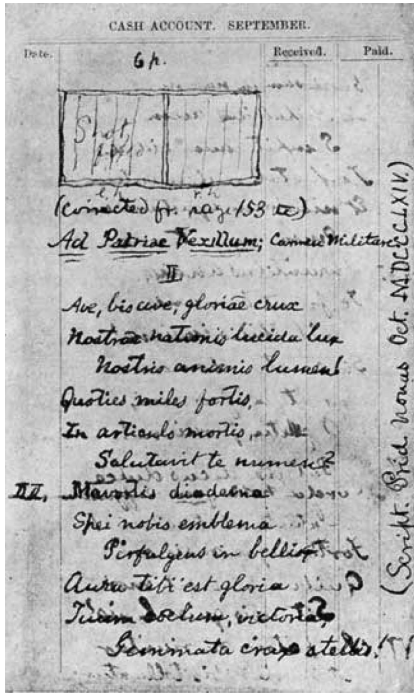 CASH ACCOUNT. SEPTEMBER.
Date. Received. Paid.
6 p.
Shot
(Corrected fr. page 153 &c)
Ad Patriae Vexillum; Carmen Militare
II
Ave, bis ave, gloriae crux
Nostrae nationis lucida lux
Nostris animis lumen!
Quoties miles fortis,
In articulo mortis,
Salutavit te numen?
III. Mavortis diadema
Spei nobis emblema
Perfulgens in bellis
Aura tibi est gloria
Tuum coelum, victoria
Gemmata crux stellis!
(Script. Prid. Nonas Oct. MDCCCLXIV.)